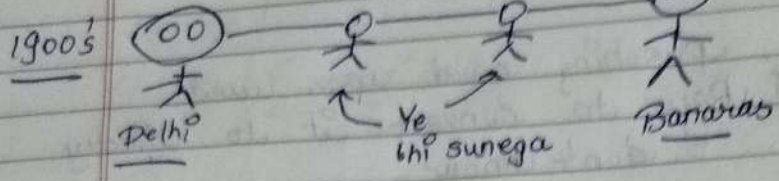 1900's
Delhi
Ye
bhi sunega
Banaras